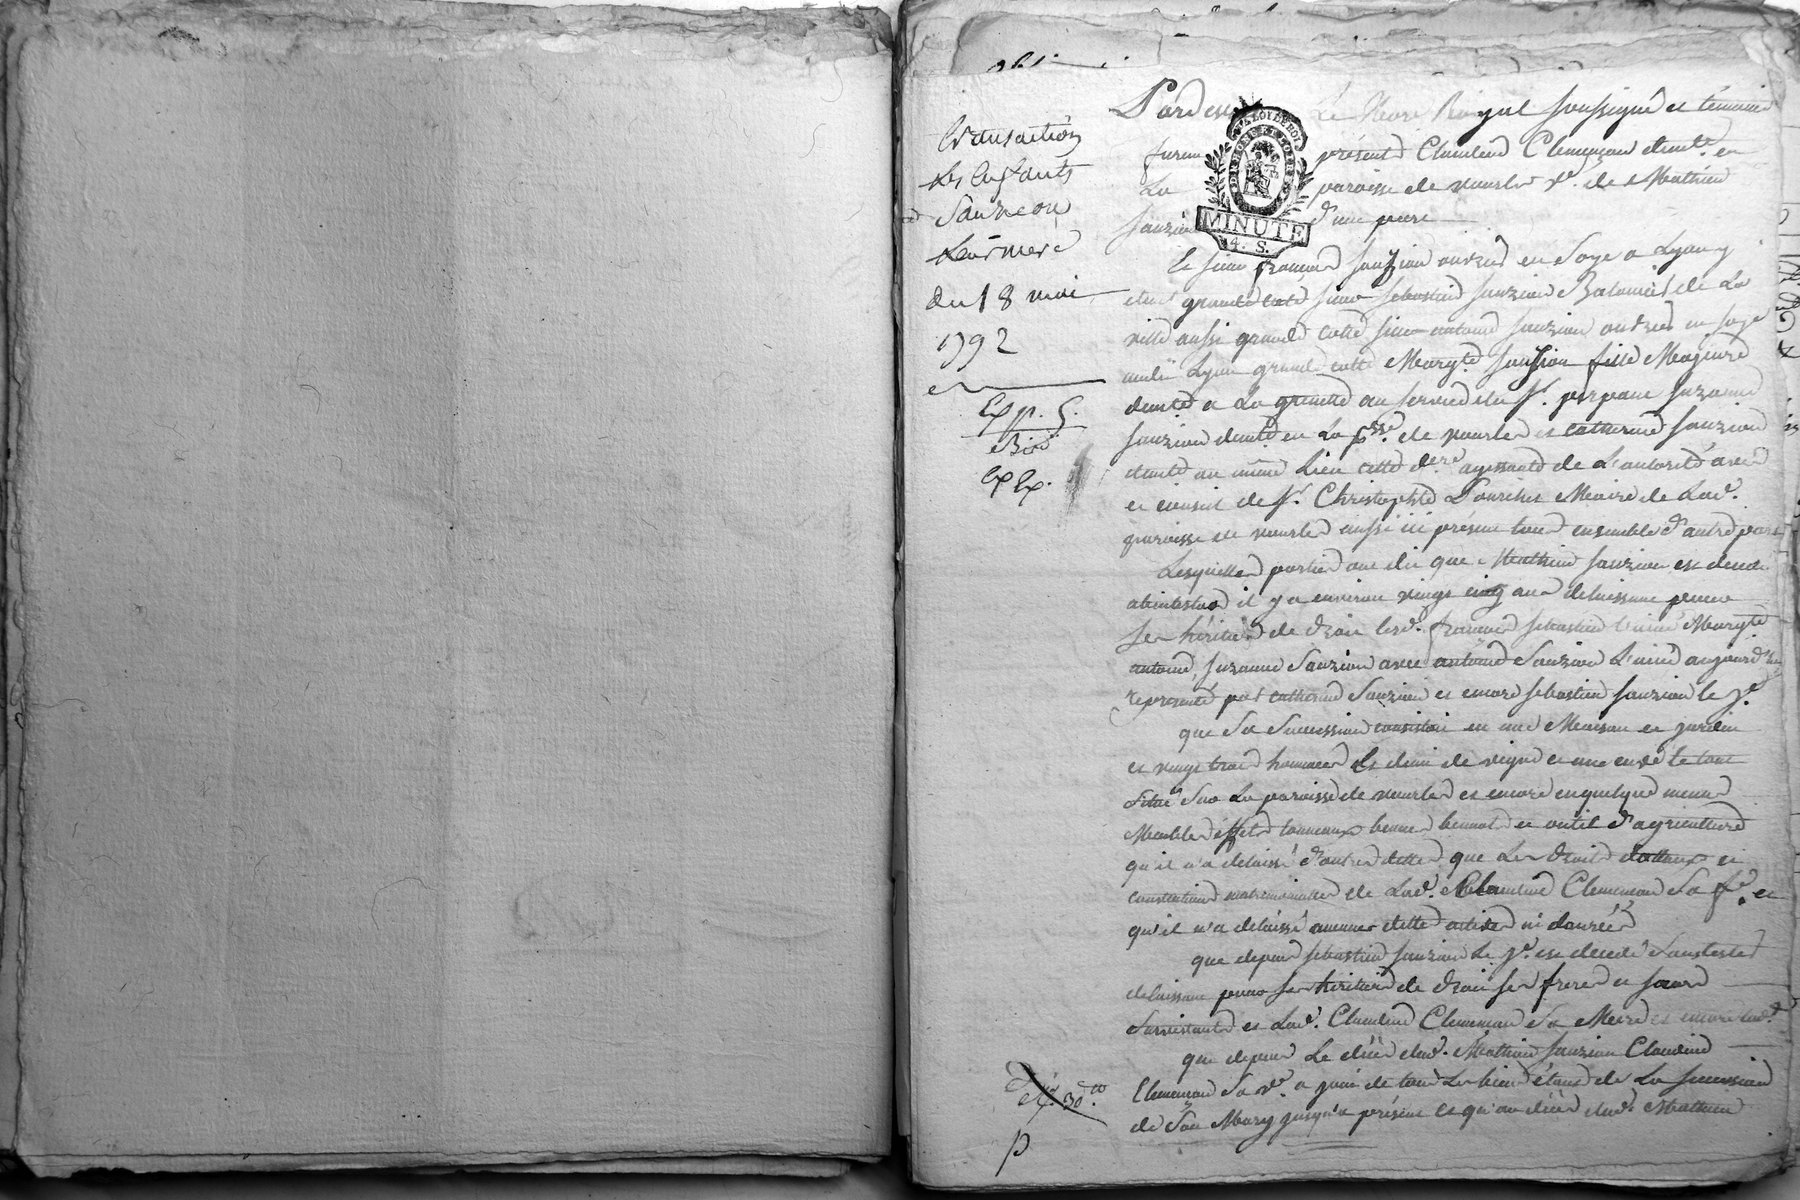 transaction
les enfants
Sauzion
leur mere
du 18 mai
1792
Exp. G.
Bis
Ex Ex.
Pardevant Le Nore Royal soussigné et témoins
furent présents Claudine Clemençon demte. en
La paroisse de nourles ve. de Mathieu
Sauzion d'une part
LA LOI LE ROI
MINUTE
4. S.
Et sieur françois Sauzion ouvrier en Soye a Lyon y
demt grande cote sieur sebastien Sauzion Batonier de La
ville aussi grande cotte sieur antoine Sauzion ouvrier en soye
audit Lyon grande cotte Margte. Sauzion fille Majeure
demte a La au service du sr. Suzanne
Sauzion demte en La psse. de nourles et catherine Sauzion
demte au même Lieu cette dere. agissante de L'autorité avis
et conseil de sr. Christophe Maire de Lad.
paroisse de nourles aussi ici présent tous ensemble d'autre part
Lesquelles parties ont dit que Mathieu Sauzion est decedé
abintestat il y a environ vingt cinq ans delaissant pour
ses héritiers de droit lesd. françois sebastien L'ainé Margte
antoine, Suzanne Sauzion avec antoine Sauzion L'ainé aujourd'hui
représenté par catherine Sauzion et encore sebastien Sauzion le je.
que Sa Succession consistoit en une Maison et jardin
et vingt trois hommées et demi de vigne et une cuve le tout
Situé Sur La paroisse de nourles et encore en quelque menus
Meubles effets tonneaux bennes bennots et outils d'agriculture
qu'il n'a delaissé d'autres dettes que Les droits dotaux et
constitution matrimoniale de Lad. Claudine Clemençon Sa fe. et
qu'il n'a delaissé aucunes dettes actives ni danrées
que depuis sebastien Sauzion Le je. est decedé Sans tester
delaissant pour ses héritiers de droit ses freres et sœurs
Survivants et Lad. Claudine Clemençon Sa Mere et encore
que depuis Le décès dud. Mathieu Sauzion Claudine
Clemençon Sa ve. a joui de tous Les biens étant de La succession
de Son Mary jusqu'à présent et qu'au décès dud. Mathieu
30
p